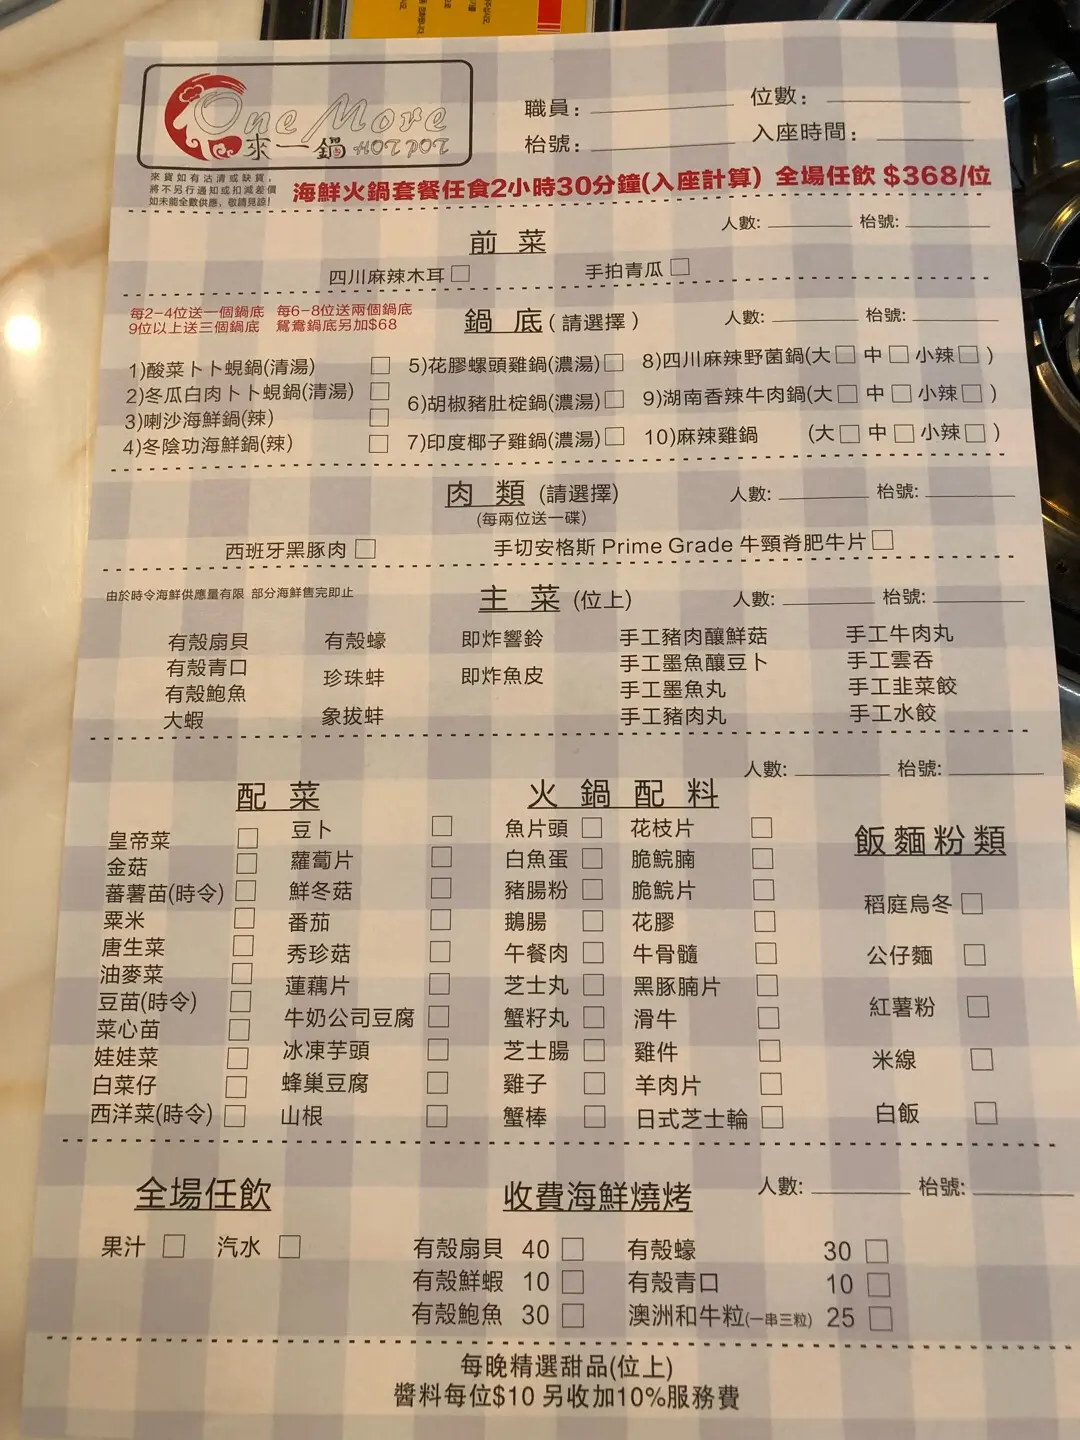 One More
來一鍋 HOT POT
職員: 位數:
枱號: 入座時間:
來貨如有沽清或缺貨,
將不另行通知或扣減差價
如未能全數供應, 敬請見諒!
海鮮火鍋套餐任食2小時30分鐘(入座計算) 全場任飲 $368/位
人數: 枱號:
前 菜
四川麻辣木耳□ 手拍青瓜□
每2-4位送一個鍋底 每6-8位送兩個鍋底
9位以上送三個鍋底 鴛鴦鍋底另加$68
鍋 底 (請選擇)
人數: 枱號:
1)酸菜卜卜蜆鍋(清湯) □ 5)花膠螺頭雞鍋(濃湯)□ 8)四川麻辣野菌鍋(大□ 中□ 小辣□)
2)冬瓜白肉卜卜蜆鍋(清湯) □ 6)胡椒豬肚椗鍋(濃湯)□ 9)湖南香辣牛肉鍋(大□ 中□ 小辣□)
3)喇沙海鮮鍋(辣) □
4)冬陰功海鮮鍋(辣) □ 7)印度椰子雞鍋(濃湯)□ 10)麻辣雞鍋 (大□ 中□ 小辣□)
肉 類 (請選擇)
(每兩位送一碟)
人數: 枱號:
西班牙黑豚肉□ 手切安格斯 Prime Grade 牛頸脊肥牛片□
由於時令海鮮供應量有限 部分海鮮售完即止
主 菜 (位上)
人數: 枱號:
有殼扇貝 有殼蠔 即炸響鈴 手工豬肉釀鮮菇 手工牛肉丸
有殼青口 珍珠蚌 即炸魚皮 手工墨魚釀豆卜 手工雲吞
有殼鮑魚 手工墨魚丸 手工韭菜餃
大蝦 象拔蚌 手工豬肉丸 手工水餃
人數: 枱號:
配 菜
皇帝菜 □
金菇 □
蕃薯苗(時令) □
粟米 □
唐生菜 □
油麥菜 □
豆苗(時令) □
菜心苗 □
娃娃菜 □
白菜仔 □
西洋菜(時令) □
豆卜 □
蘿蔔片 □
鮮冬菇 □
番茄 □
秀珍菇 □
蓮藕片 □
牛奶公司豆腐 □
冰凍芋頭 □
蜂巢豆腐 □
山根 □
火 鍋 配 料
魚片頭 □ 花枝片 □
白魚蛋 □ 脆鯇腩 □
豬腸粉 □ 脆鯇片 □
鵝腸 □ 花膠 □
午餐肉 □ 牛骨髓 □
芝士丸 □ 黑豚腩片 □
蟹籽丸 □ 滑牛 □
芝士腸 □ 雞件 □
雞子 □ 羊肉片 □
蟹棒 □ 日式芝士輪 □
飯麵粉類
稻庭烏冬 □
公仔麵 □
紅薯粉 □
米線 □
白飯 □
全場任飲
果汁 □ 汽水 □
收費海鮮燒烤
人數: 枱號:
有殼扇貝 40 □ 有殼蠔 30 □
有殼鮮蝦 10 □ 有殼青口 10 □
有殼鮑魚 30 □ 澳洲和牛粒(一串三粒) 25 □
每晚精選甜品(位上)
醬料每位$10 另收加10%服務費